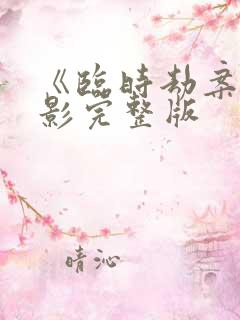 《臨時劫案
影完整版
晴沁